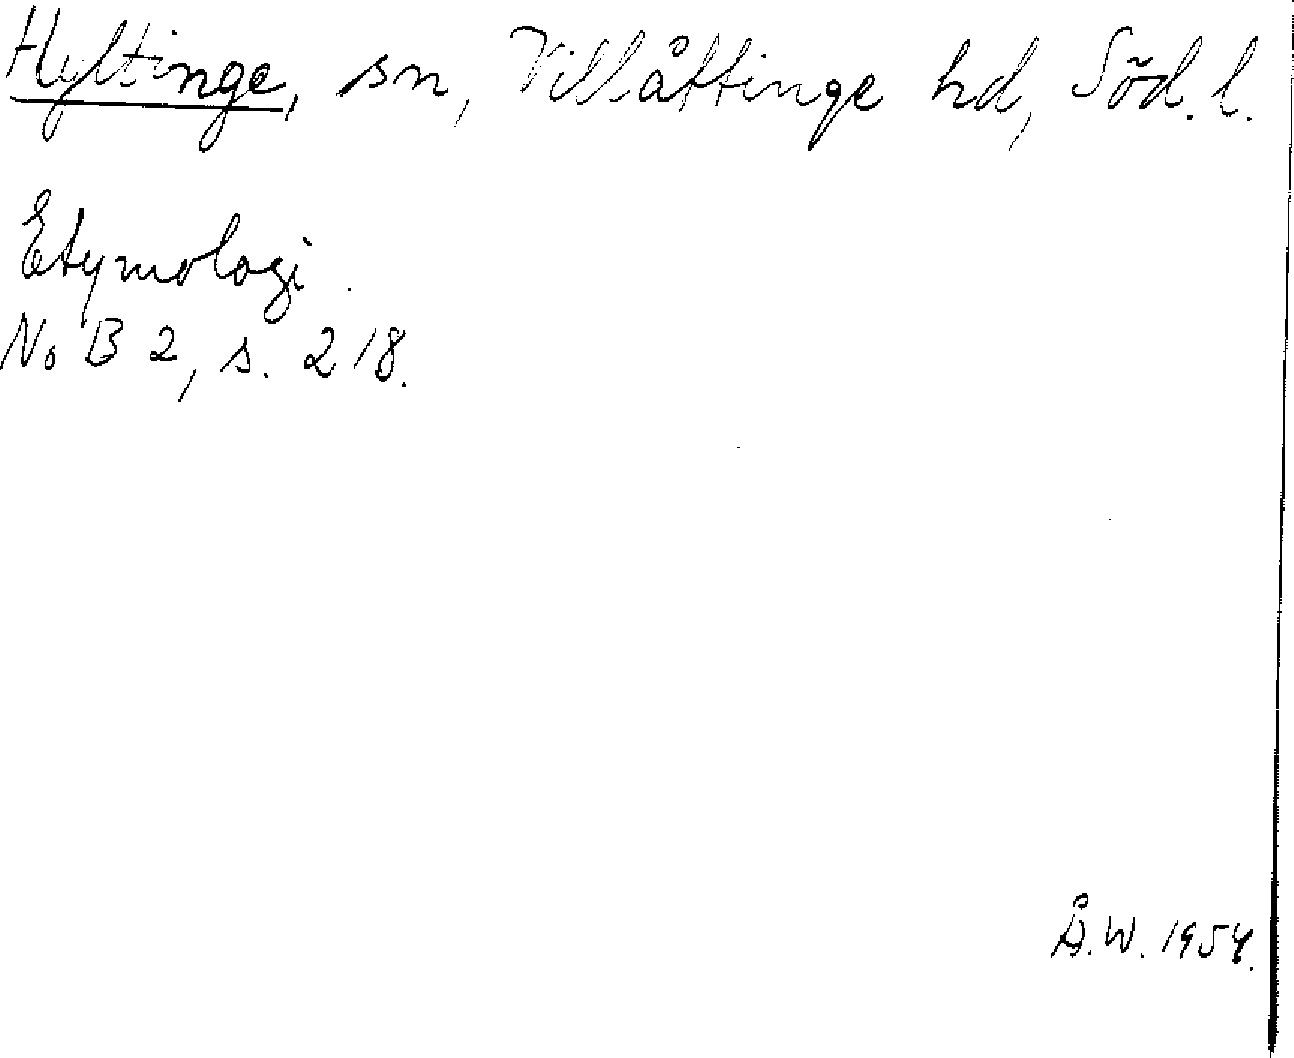 Hyltinge, sn, Villåttinge hd, Söd. l.
Etymologi.
NoB 2, s. 218.
Å.W. 1954.